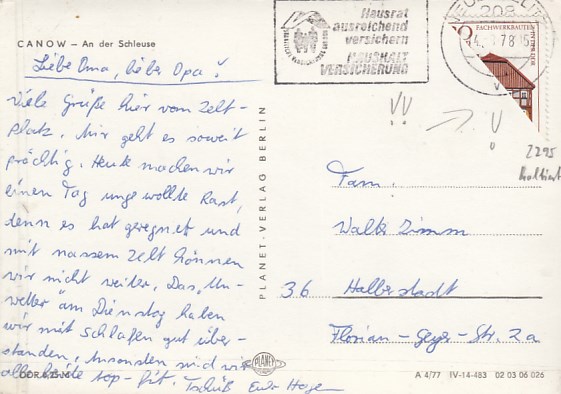 CANOW — An der Schleuse
Liebe Oma, lieber Opa!
Viele Grüße hier vom Zelt-
platz. Mir geht es soweit
prächtig. Heute machen wir
einen Tag ungewollte Rast,
denn es hat geregnet und
mit nassem Zelt können
wir nicht weiter. Das Un-
wetter am Dienstag haben
wir mit schlafen gut über-
standen. Ansonsten sind wir
alle beide top-fit. Tschüß Euer
PLANET-VERLAG BERLIN
Hausrat
ausreichend
versichern
HAUSHALT
VERSICHERUNG
208
78
FACHWERKBAUTEN IN DER DDR
!! → !
2295
Fam.
Walter Zimm
36 Halberstadt
Florian-Geyer-Str. 2a
PLANET
A 4/77 IV-14-483 02 03 06 026